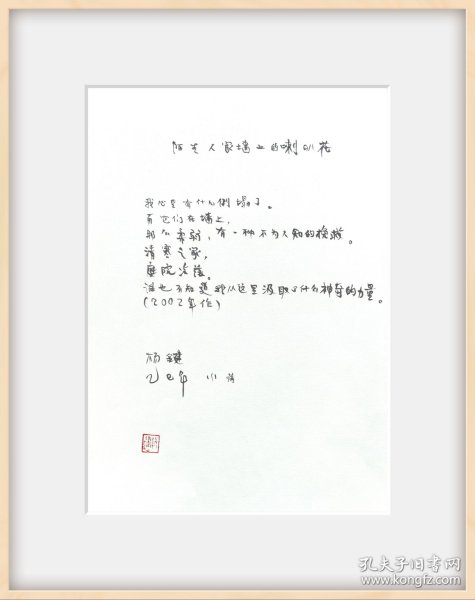 陌生人家墙上的喇叭花
我心里有什么倒塌了。
看它们在墙上,
那么弱,有一种不为人知的挽救。
清寒之家,
庭院冷落。
谁也不知道我从这里汲取了什么神奇的力量。
(2002年作)
杨键
乙巳年
孔夫子旧书网
www.kongfz.com